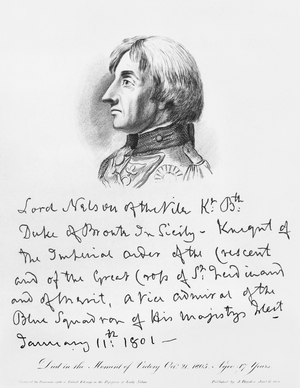 Lord Nelson of the Nile Kt. Bt.
Duke of Bronti in Sicily - Knight of
the Imperial order of the Crescent
and of the Great Cross of St. Ferdinand
and of Merit, a vice admiral of the
Blue Squadron of His Majestys Fleet
January 11th. 1801 -
Died in the Moment of Victory Octr. 21, 1805 Aged 47 Years